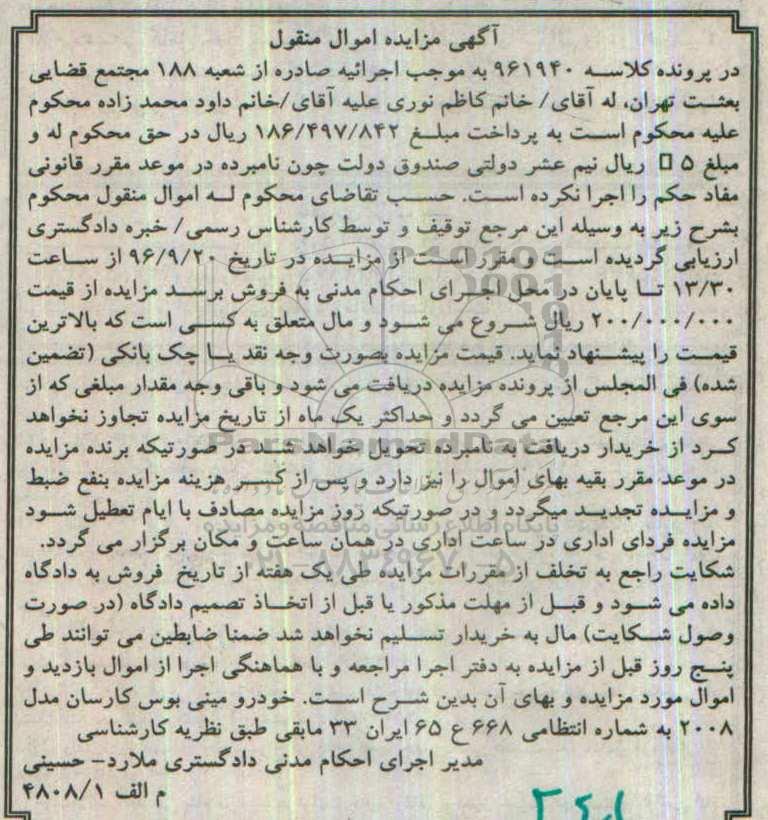 آگهی مزایده اموال منقول
در پرونده کلاسه ۹۶۱۹۴۰ به موجب اجرائیه صادره از شعبه ۱۸۸ مجتمع قضایی
بعثت تهران، له آقای/ خانم کاظم نوری علیه آقای/خانم داود محمد زاده محکوم
علیه محکوم است به پرداخت مبلغ ۱۸۶/۴۹۷/۸۴۲ ریال در حق محکوم له و
مبلغ ۵ ریال نیم عشر دولتی صندوق دولت چون نامبرده در موعد مقرر قانونی
مفاد حکم را اجرا نکرده است. حسب تقاضای محکوم له اموال منقول محکوم
بشرح زیر به وسیله این مرجع توقیف و توسط کارشناس رسمی/ خبره دادگستری
ارزیابی گردیده است و مقرر است از مزایده در تاریخ ۹۶/۹/۲۰ از ساعت
۱۳/۳۰ تا پایان در محل اجرای احکام مدنی به فروش برسد مزایده از قیمت
۲۰۰/۰۰۰/۰۰۰ ریال شروع می شود و مال متعلق به کسی است که بالاترین
قیمت را پیشنهاد نماید. قیمت مزایده بصورت وجه نقد یا چک بانکی (تضمین
شده) فی المجلس از پرونده مزایده دریافت می شود و باقی وجه مقدار مبلغی که از
سوی این مرجع تعیین می گردد و حداکثر یک ماه از تاریخ مزایده تجاوز نخواهد
کرد از خریدار دریافت به نامبرده تحویل خواهد شد در صورتیکه برنده مزایده
در موعد مقرر بقیه بهای اموال را نیز دارد و پس از کسر هزینه مزایده بنفع ضبط
و مزایده تجدید میگردد و در صورتیکه روز مزایده مصادف با ایام تعطیل شود
مزایده فردای اداری در ساعت اداری در همان ساعت و مکان برگزار می گردد.
شکایت راجع به تخلف از مقررات مزایده طی یک هفته از تاریخ فروش به دادگاه
داده می شود و قبل از مهلت مذکور یا قبل از اتخاذ تصمیم دادگاه (در صورت
وصول شکایت) مال به خریدار تسلیم نخواهد شد ضمنا ضابطین می توانند طی
پنج روز قبل از مزایده به دفتر اجرا مراجعه و با هماهنگی اجرا از اموال بازدید و
اموال مورد مزایده و بهای آن بدین شرح است. خودرو مینی بوس کارسان مدل
۲۰۰۸ به شماره انتظامی ۶۶۸ ع ۶۵ ایران ۳۳ مابقی طبق نظریه کارشناسی
مدیر اجرای احکام مدنی دادگستری ملارد- حسینی
م الف ۴۸۰۸/۱
ParsNamadData
پایگاه اطلاع رسانی مناقصه و مزایده
۰۲۱-۸۸۳۴۹۶۷۰-۵